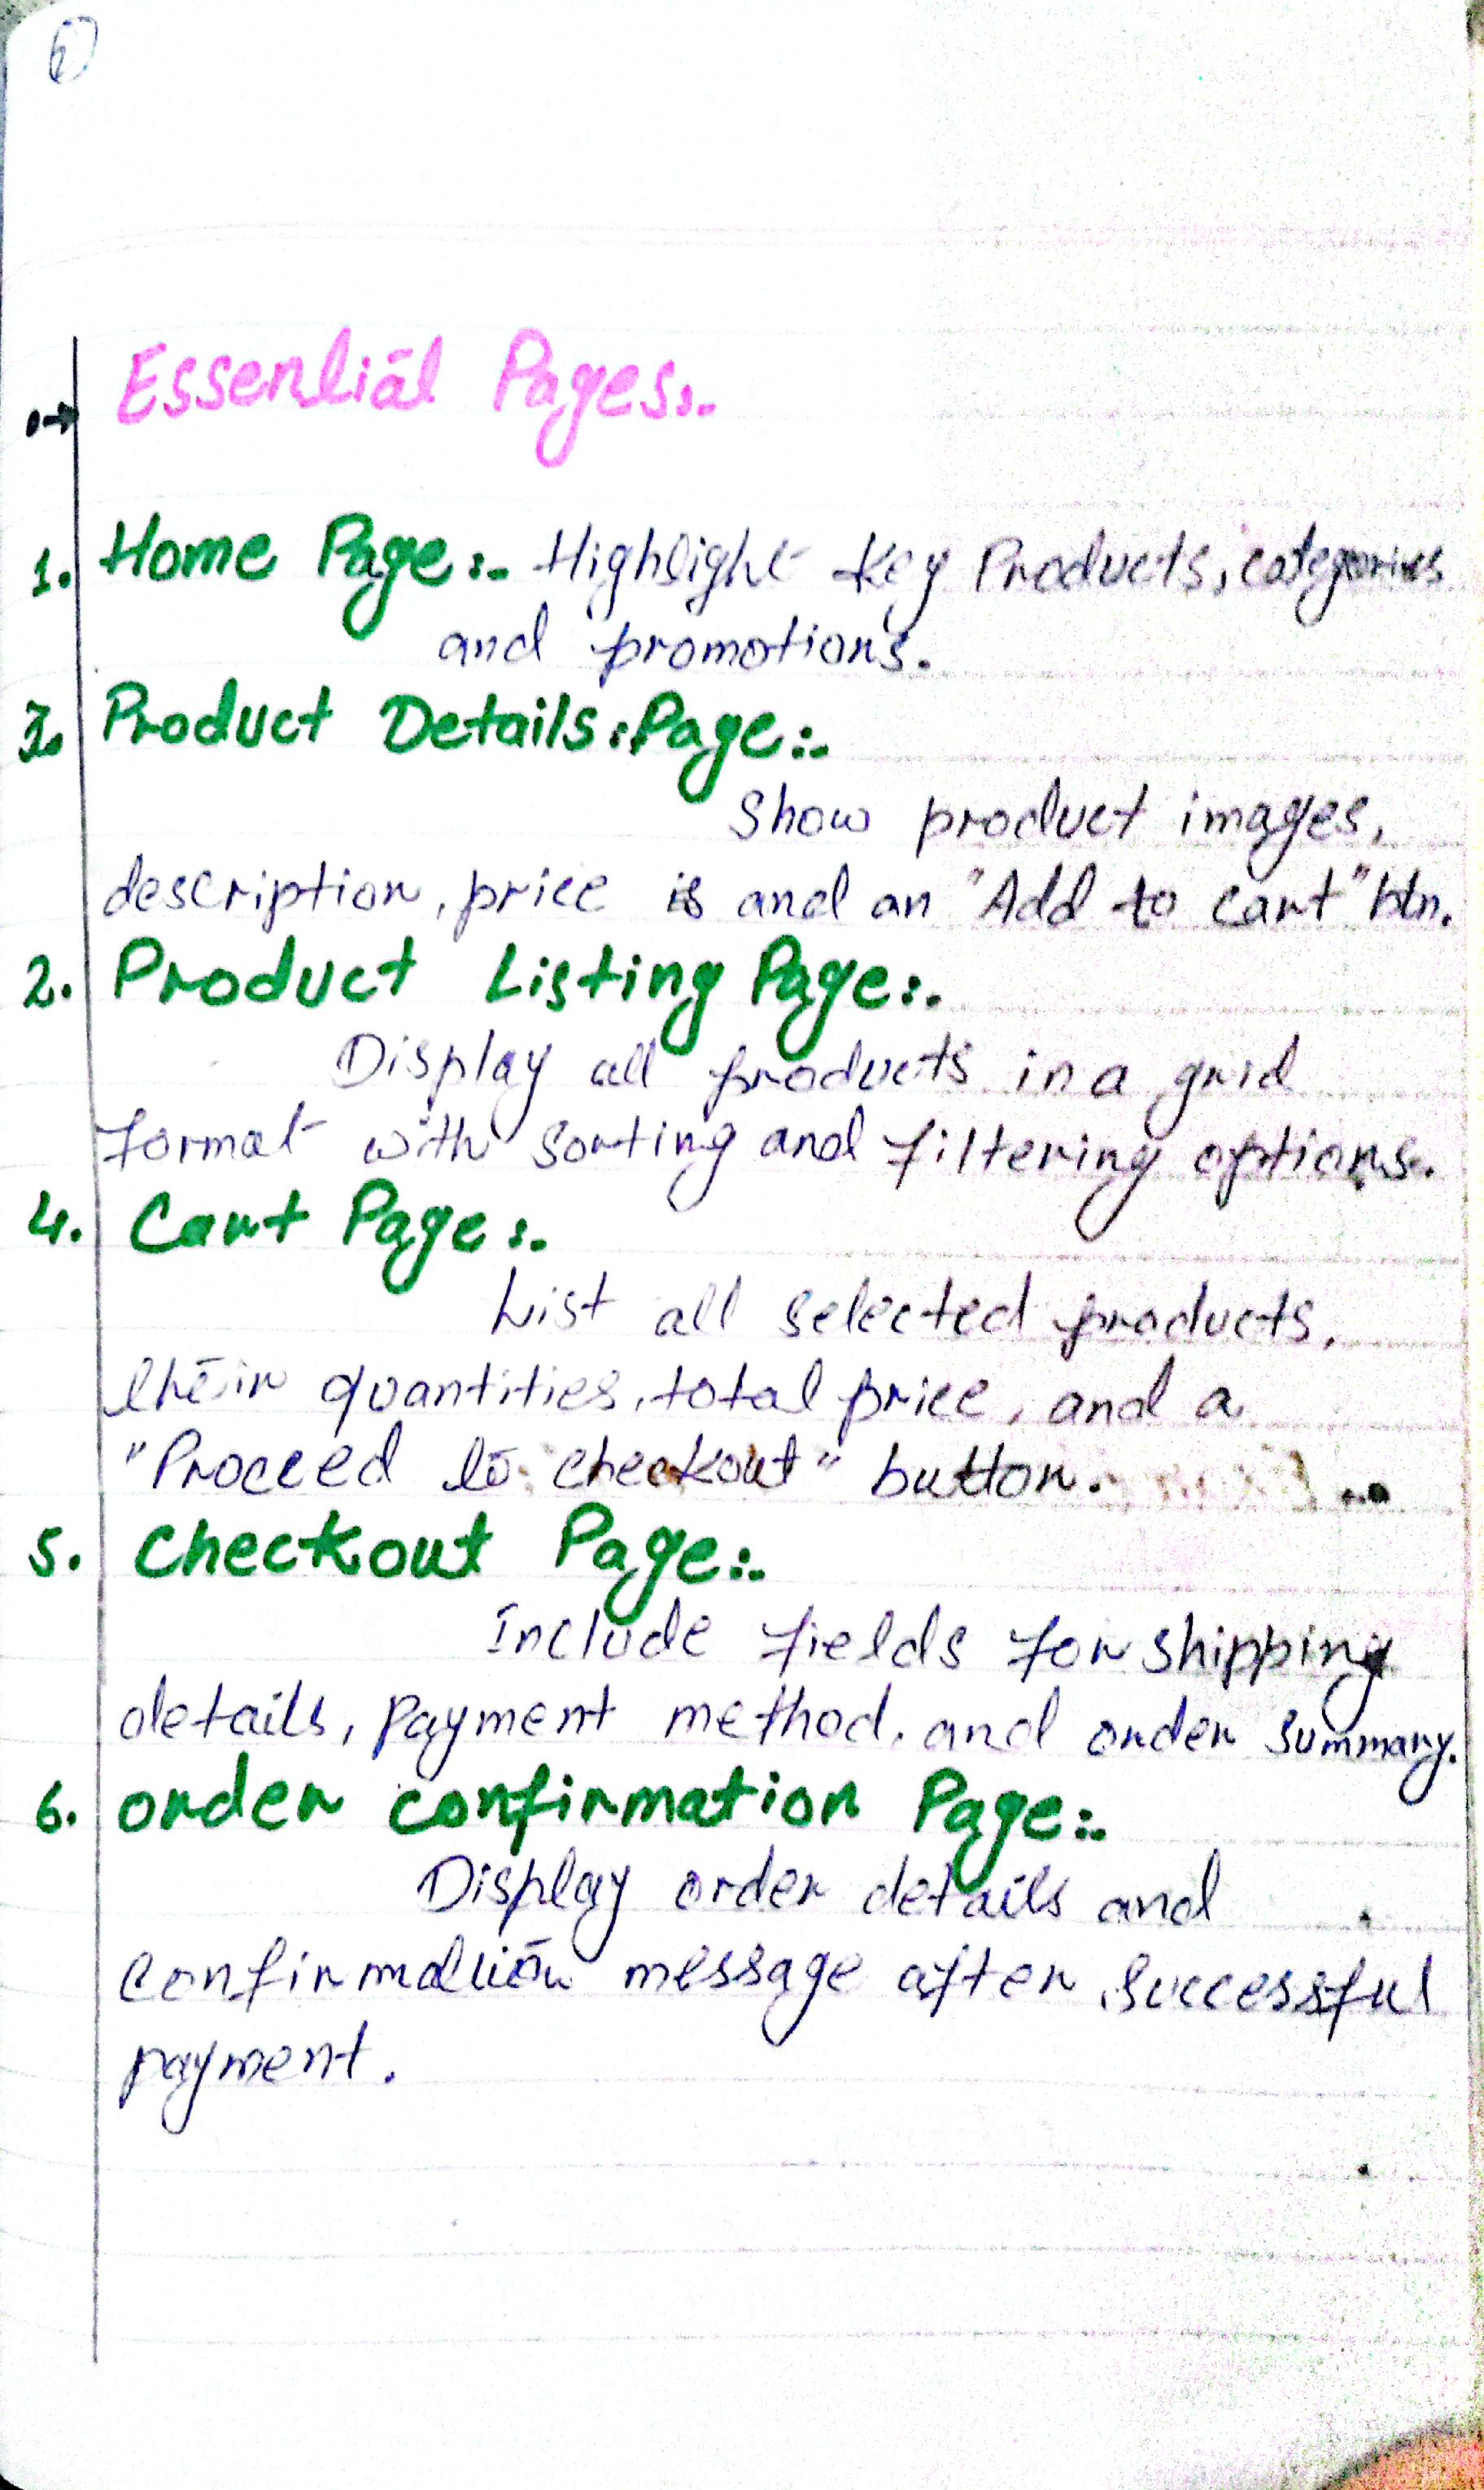 Essential Pages:-
1. Home Page:- Highlight Key Products, categories
and promotions.
3. Product Details:Page:-
Show product images,
description, price is and an "Add to cart" btn.
2. Product Listing Page:-
Display all products in a grid
format with sorting and filtering options.
4. Cart Page:-
List all selected products,
their quantities, total price, and a
"Proceed to checkout" button.
5. Checkout Page:-
Include fields for shipping
details, Payment method, and order summary.
6. order confirmation Page:-
Display order details and
confirmation message after successful
payment.